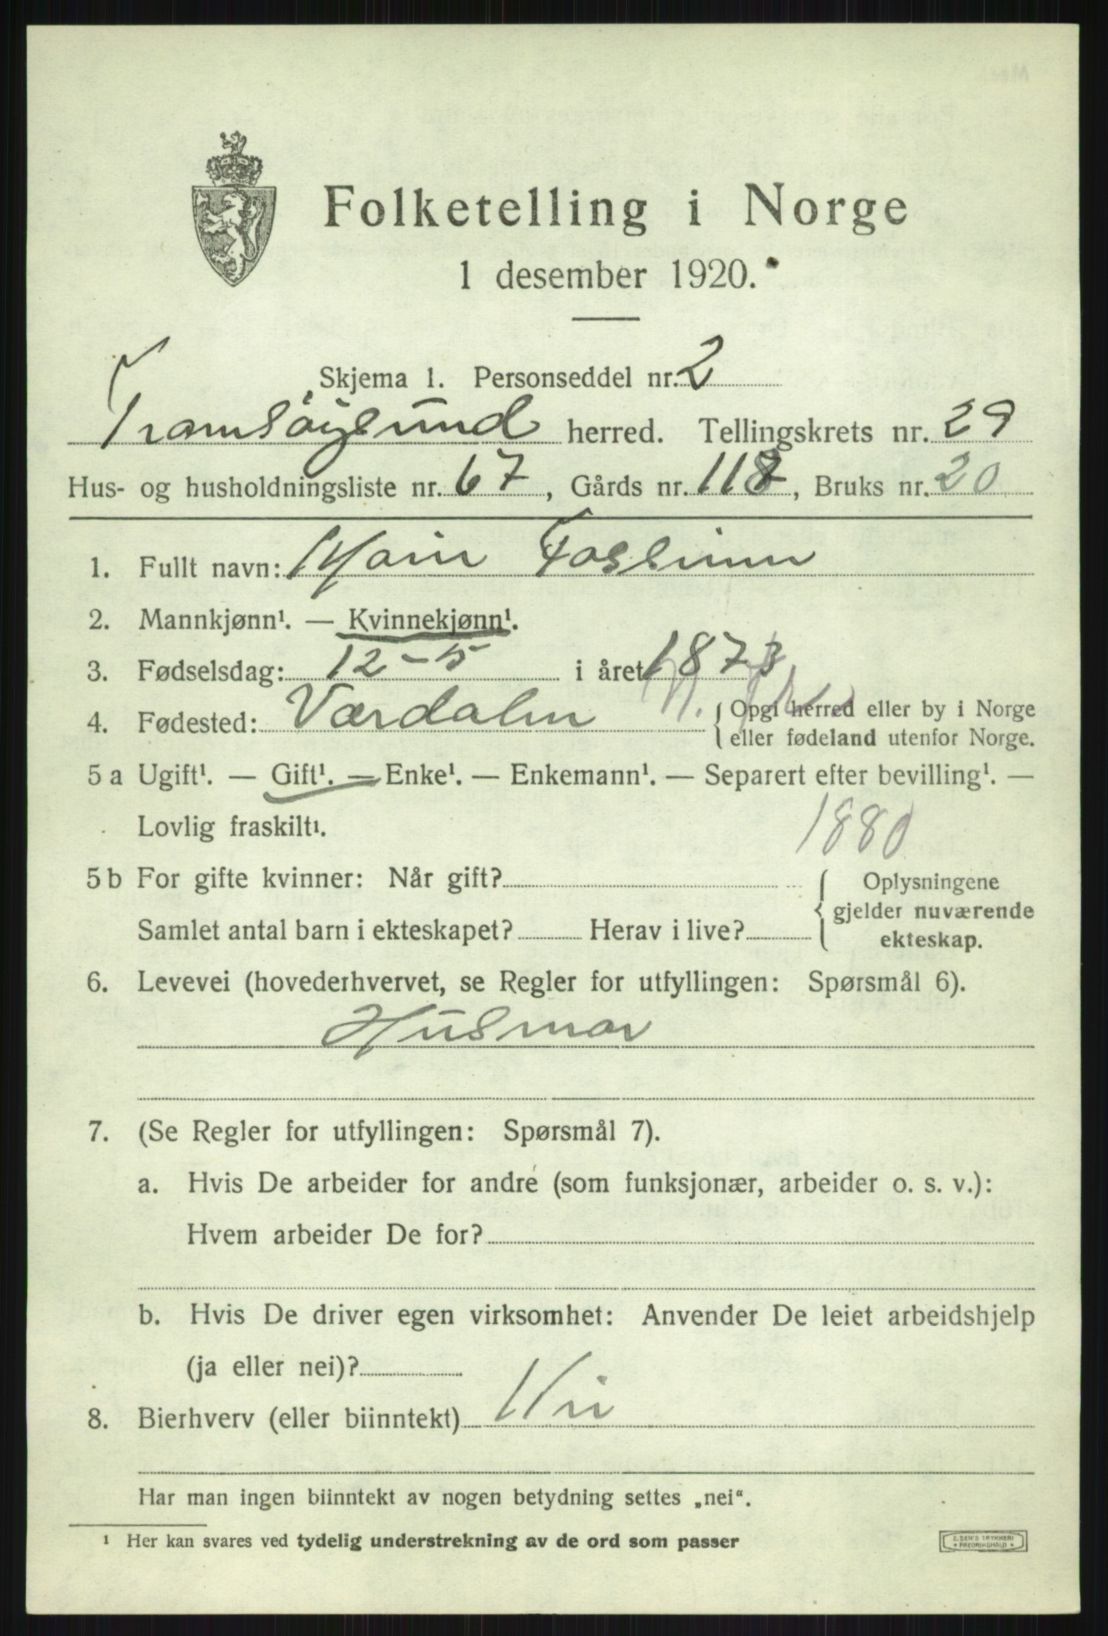 Folketelling i Norge
1 desember 1920.
Skjema 1. Personseddel nr. 2
Tromsøysund herred. Tellingskrets nr. 29
Hus- og husholdningsliste nr. 67, Gårds nr. 118, Bruks nr. 20
1. Fullt navn: Fossimn
2. Mannkjønn¹. — Kvinnekjønn¹.
3. Fødselsdag: 12-5 i året 1873
4. Fødested: Værdalen { Opgi herred eller by i Norge
eller fødeland utenfor Norge.
5 a Ugift¹. — Gift¹. — Enke¹. — Enkemann¹. — Separert efter bevilling¹. —
Lovlig fraskilt¹.
1880
5 b For gifte kvinner: Når gift? { Oplysningene
gjelder nuværende
Samlet antal barn i ekteskapet? Herav i live? ekteskap.
6. Levevei (hovederhvervet, se Regler for utfyllingen: Spørsmål 6).
Husmor
7. (Se Regler for utfyllingen: Spørsmål 7).
a. Hvis De arbeider for andre (som funksjonær, arbeider o. s. v.):
Hvem arbeider De for?
b. Hvis De driver egen virksomhet: Anvender De leiet arbeidshjelp
(ja eller nei)?
8. Bierhverv (eller biinntekt) Nei
Har man ingen biinntekt av nogen betydning settes „nei“.
¹ Her kan svares ved tydelig understrekning av de ord som passer